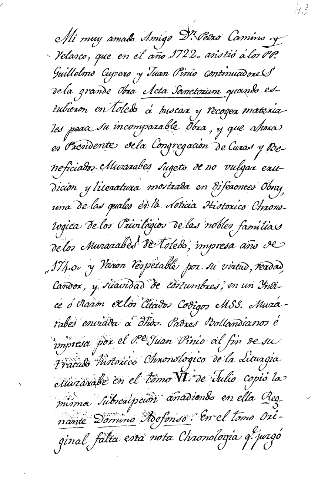 43
Mi muy amado Amigo Dn. Pedro Camino y
Velasco, que en el año 1722. asistió à los PP.
Guillelmo Cupero y Juan Pinio continuadores
de la grande obra Acta Sanctorum quando es-
tubieron en toledo à buscar y recoger materia-
les para su incomparable Obra, y que ahora
es Presidente de la Congregacion de Curas y Be-
neficiados Muzarabes Sugeto de no vulgar eru-
dicion y literatura mostrada en diferentes Obras,
una de las quales es la Noticia Historico Chrono-
logica de los Privilegios de las nobles familias
de los Muzarabes de toledo, impresa año de
1740. y Varon respetable por su virtud, verdad,
Candor, y suavidad de costumbres, en un Indi-
ce ò Razon de los Citados Codigos MSS. Muza-
rabes enviada à dhos. Padres Bollandianos è
impresa por el Pe. Juan Pinio al fin de su
tratado Historico Chronologico de la Liturgia
Muzarabe en el tomo VI. de Julio copió la
misma subscripcion añadiendo en ella Reg-
nante Domino Adefonso. En el tomo Ori-
ginal falta esta nota Chronologica q. juzgó